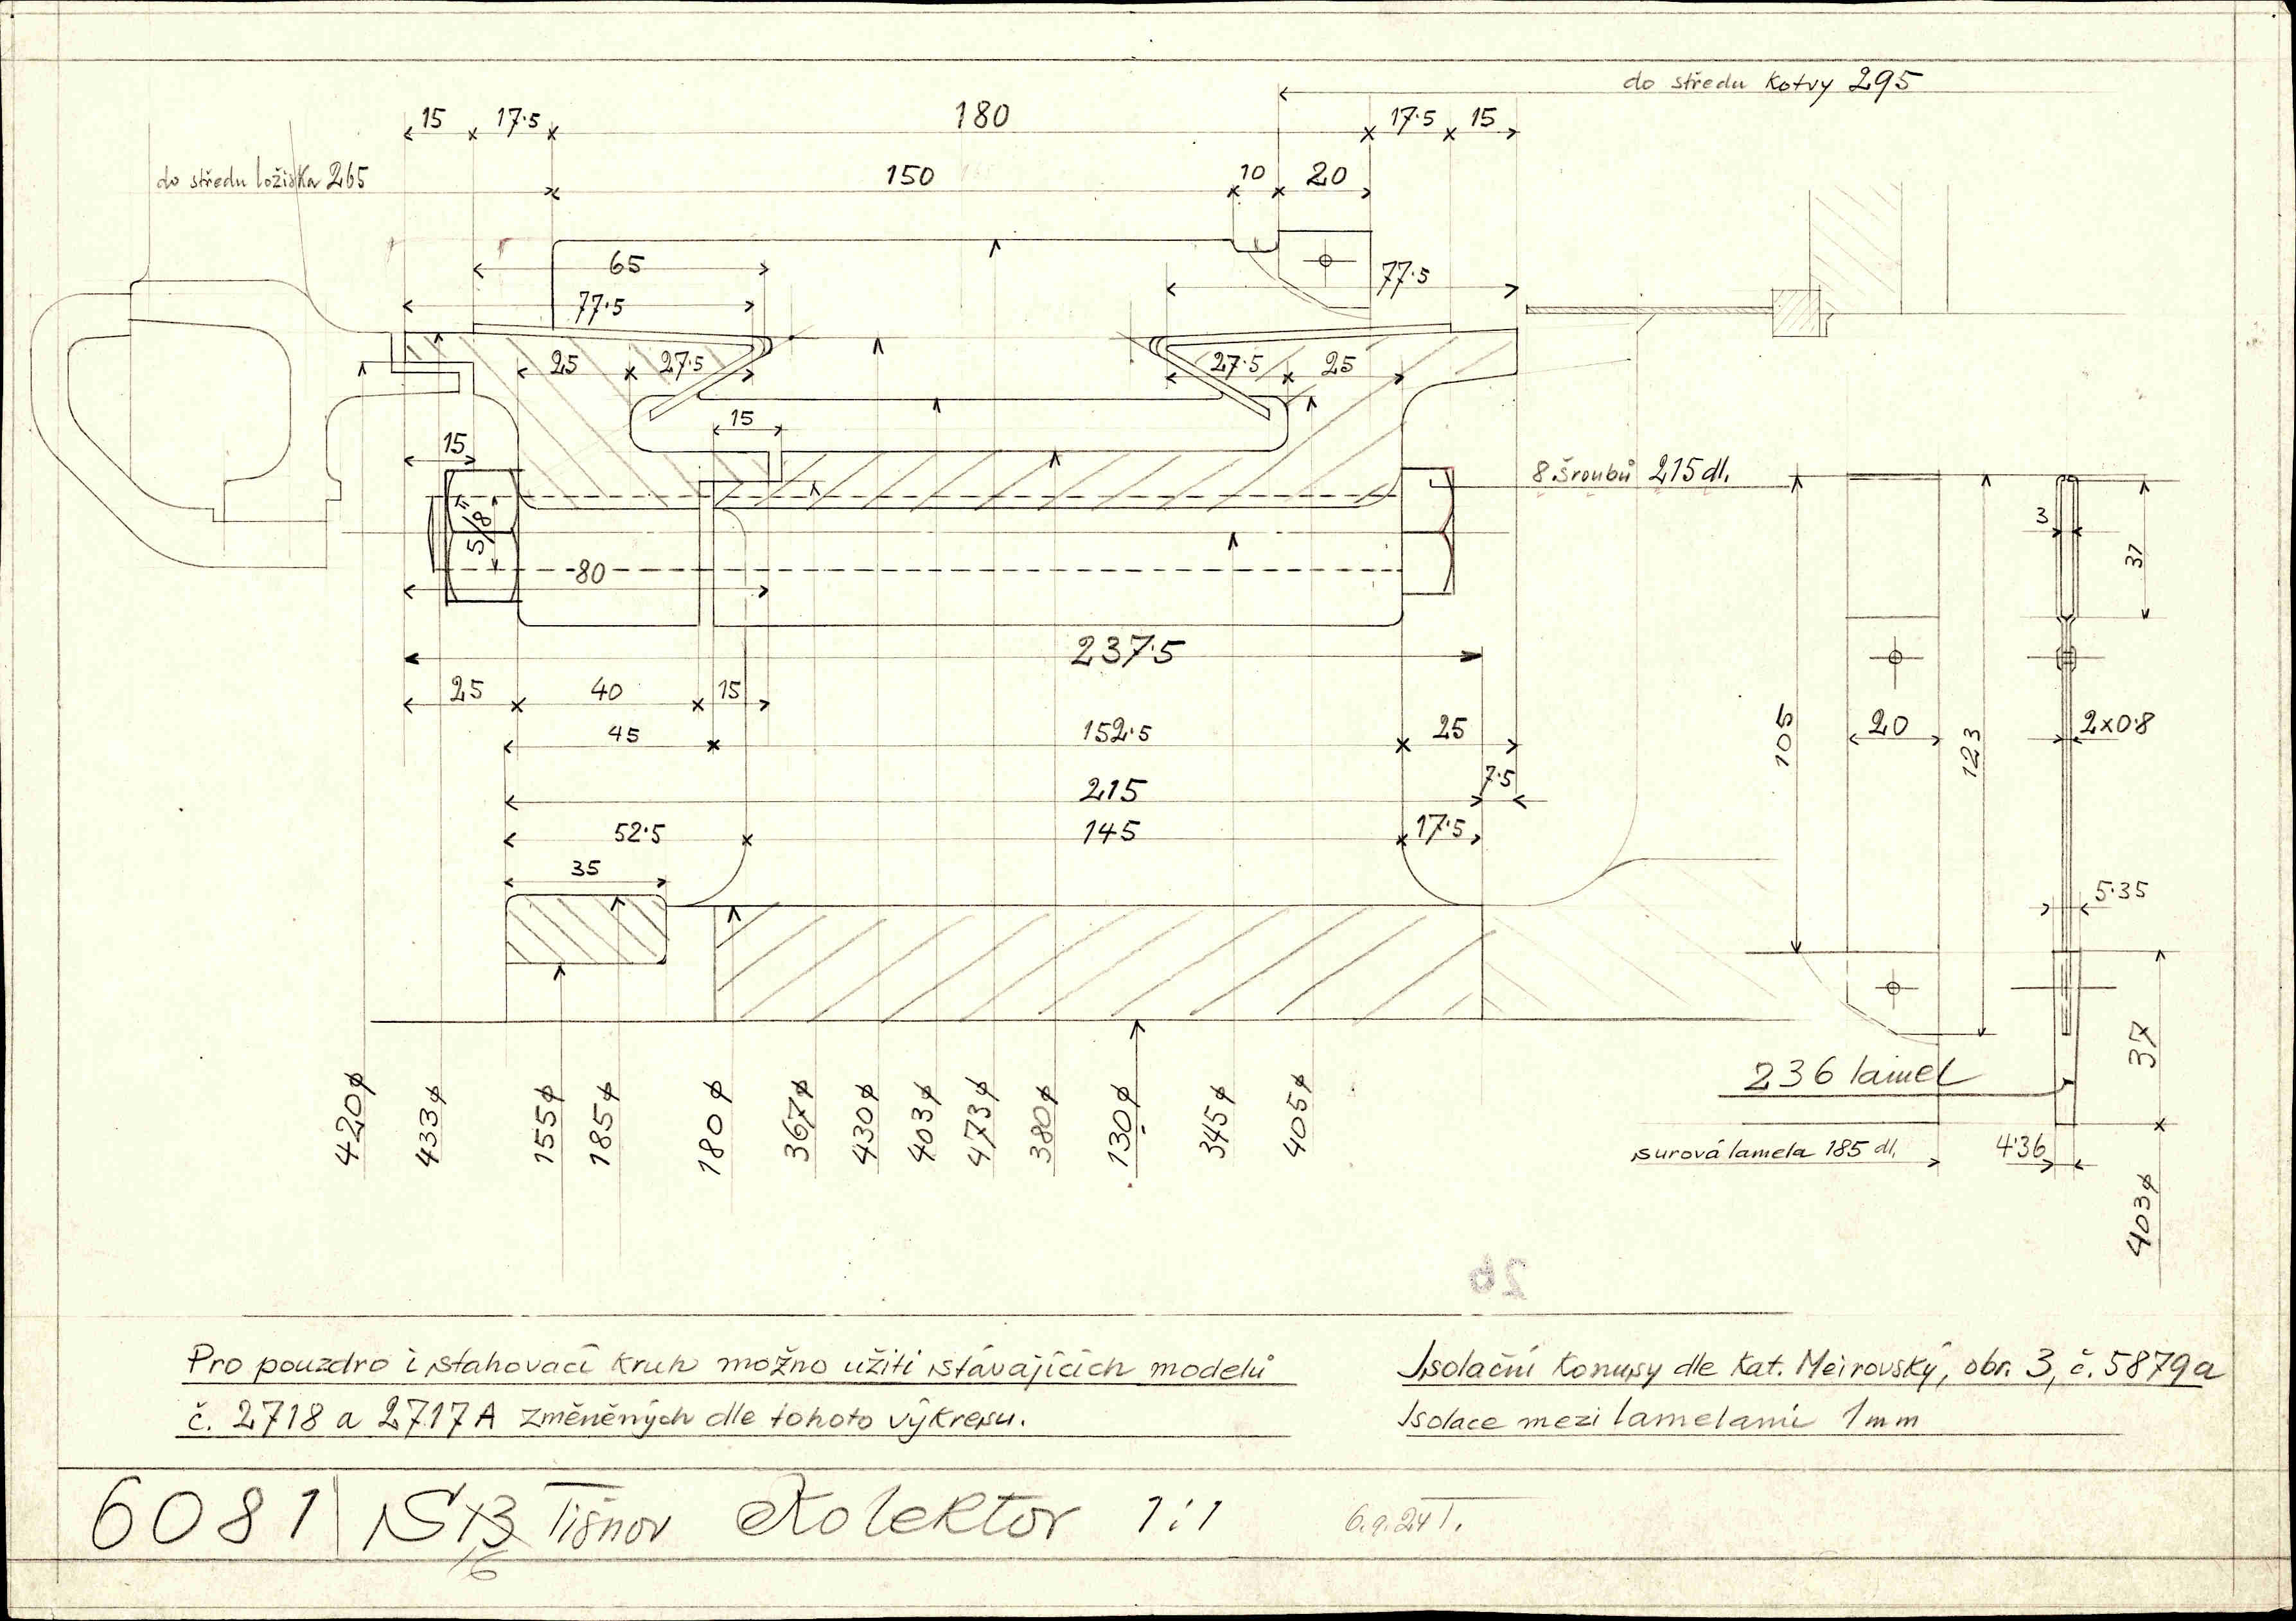 do středu kotvy 295
15 17·5 180 17·5 15
do středu ložiska 265 150 10 20
65 77·5
77·5
25 27·5 27·5 25
15
15
8 šroubů 215 dl.
5/8"
3
37
80
237·5
25 40 15
45 152·5 25
105 20 123 2×0·8
215 7·5
52·5 145 17·5
35
5·35
37
236 lamel
420ø 433ø 155ø 185ø 180ø 367ø 430ø 403ø 473ø 380ø 130ø 345ø 405ø
surová lamela 185 dl. 4·36
403ø
26
Pro pouzdro i stahovací kruh možno užiti stávajících modelů
č. 2718 a 2717A změněných dle tohoto výkresu.
Isolační konusy dle kat. Meirovský, obr. 3, č. 5879a
Isolace mezi lamelami 1mm
6081 Tišnov Kolektor 1:1 6.9.24
6